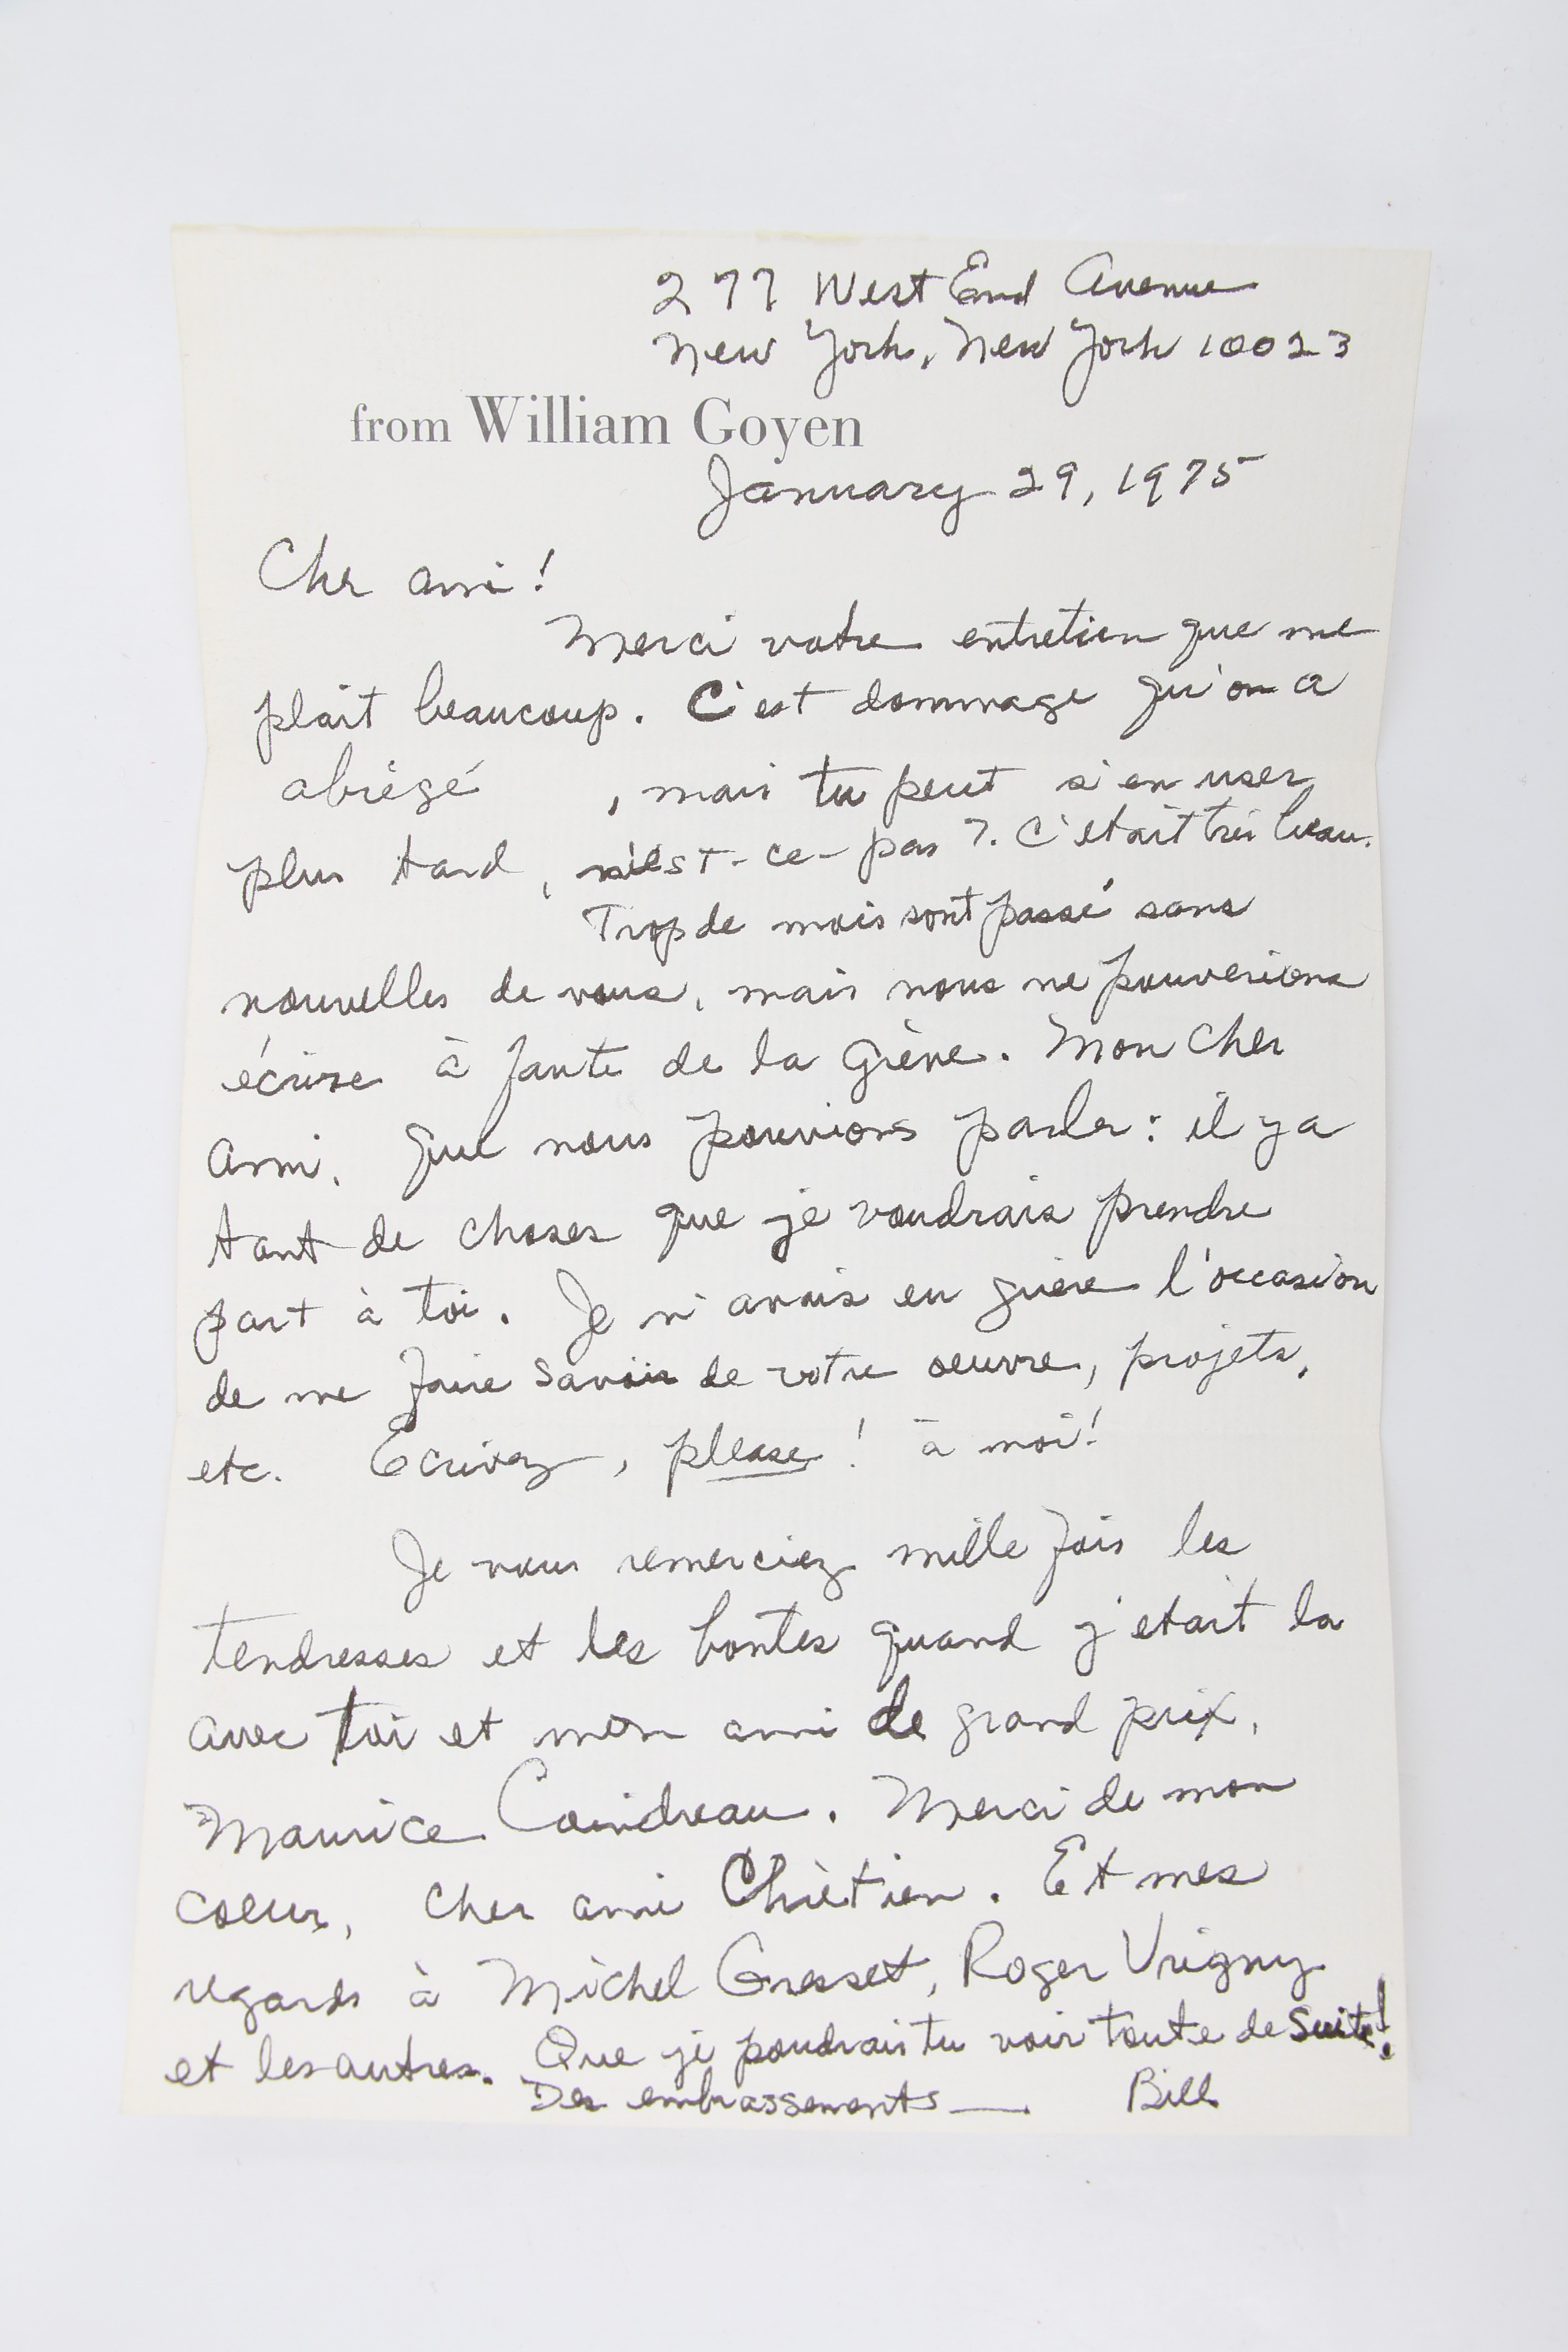 277 West End Avenue
New York, New York 10023
from William Goyen
January 29, 1975
Cher ami!
Merci votre entretien que me
plait beaucoup. C'est dommage qu'on a
abrégé , mais tu peut s'en user
plus tard, n'est-ce-pas?. C'etait très beau.
Trop de mois sont passé sans
nouvelles de vous, mais nous ne pouverions
écrire à faute de la Grève. Mon cher
ami, que nous pouvions parler: il y a
tant de choses que je voudrais prendre
part à toi. Je n'avais eu guère l'occasion
de me faire savoir de votre oeuvre, projets,
etc. Ecrivez, please! à moi!
Je vous remerciez mille fois les
tendresses et les bontes quand j'etait la
avec toi et mon ami de grand prix,
Maurice Coindreau. Merci de mon
coeur, cher ami Chrètien. Et mes
regards à Michel Gresset, Roger Vrigny
et les autres. Que je poudrais tu voir toute de suite!
Des embrassements — Bill